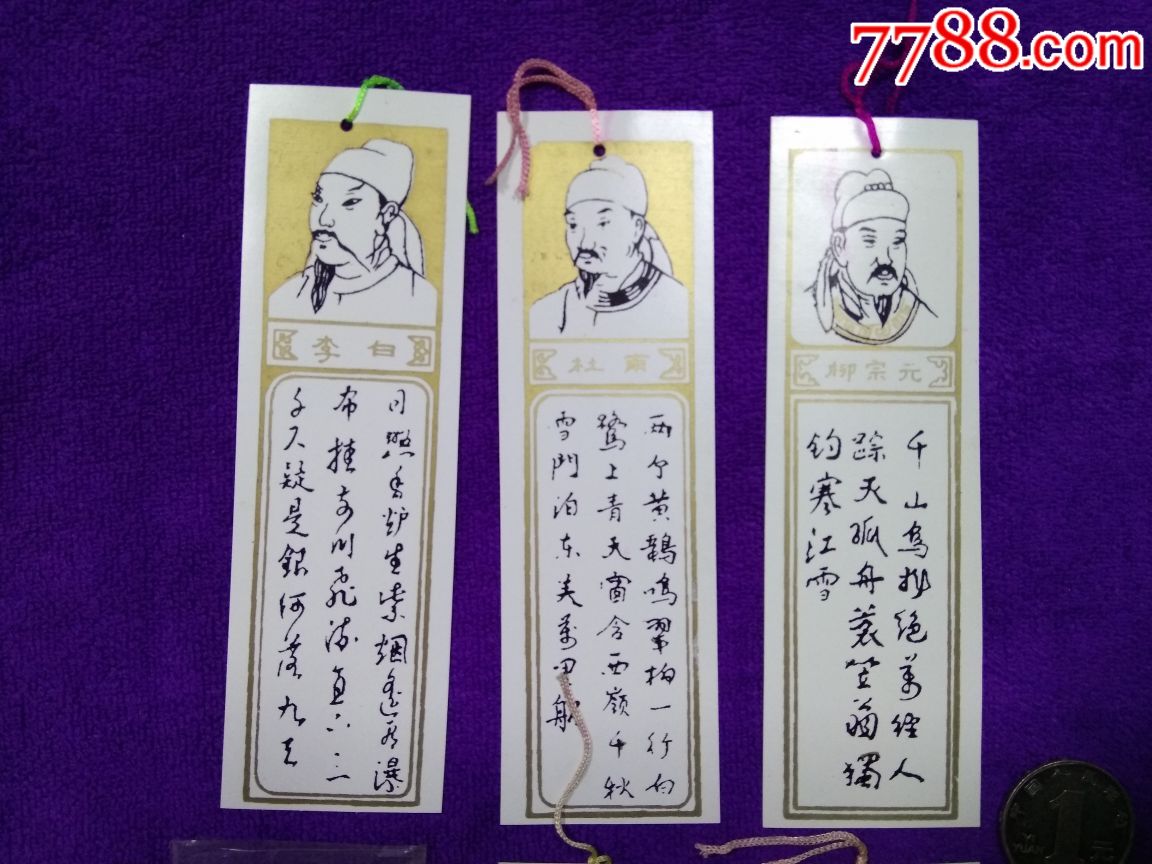 7788.com
李白
日照香炉生紫烟遥看瀑
布挂前川飞流直下三
千尺疑是銀河落九天
杜甫
两个黄鸝鳴翠柳一行白
鷺上青天窗含西嶺千秋
雪門泊东吴萬里船
柳宗元
千山鸟飛绝萬径人
踪灭孤舟蓑笠翁獨
钓寒江雪
1
YUAN